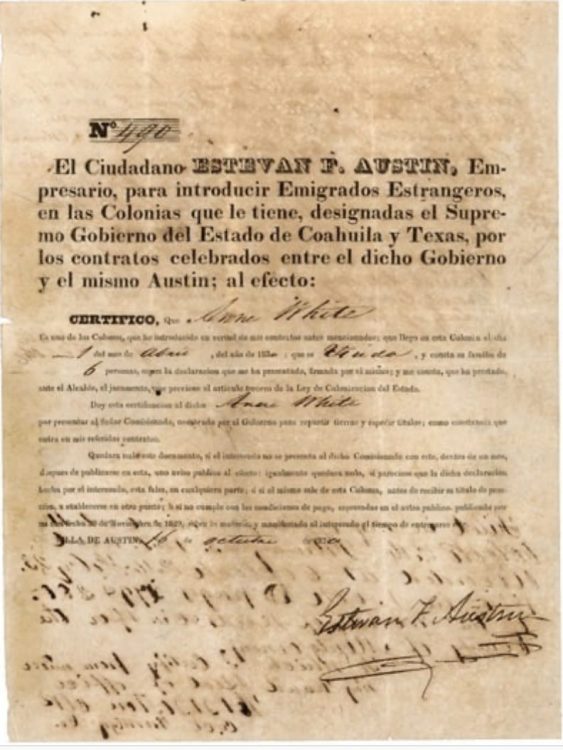 No. 490
El Ciudadano ESTEVAN F. AUSTIN, Em-
presario, para introducir Emigrados Estrangeros,
en las Colonias que le tiene, designadas el Supre-
mo Gobierno del Estado de Coahuila y Texas, por
los contratos celebrados entre el dicho Gobierno
y el mismo Austin; al efecto:
CERTIFICO, Que Anne White
Es uno de los Colonos, que he introducido en virtud de mis contratos antes mencionados; que llego en esta Colonia el dia
1 del mes de Abril, del año de 183 ; que es Viuda, y consta su familia de
6 personas, segun la declaracion que me ha presentado, firmada por el mismo; y me consta, que ha prestado,
ante el Alcalde, el juramento, que previene el articulo tercero de la Ley de Colonizacion del Estado.
Doy esta certificacion al dicho Anne White
por presentar al Señor Comisionado, nombrado por el Gobierno para repartir tierras y espedir titulos; como constancia que
entra en mis referidos contratos.
Quedara nulo este documento, si el interesado no se presenta al dicho Comisionado con este, dentro de un mes,
despues de publicarse en esta, uno aviso publico al efecto: igualmente quedara nula, si pareciese que la dicha declaracion
hecha por el interesado, esta falsa, en cualquiera parte; ó si el mismo sale de esta Colonia, antes de recibir su titulo de pose-
sion, a establecerse en otro punto; ó si no cumple con las condiciones de pago, espresadas en el aviso publico, publicado por
mi con fecha 20 de Noviembre de 1829, sobre la materia, y manifestado al interesado el tiempo de entrarse
VILLA DE AUSTIN, 16 de octubre de
Estevan F. Austin